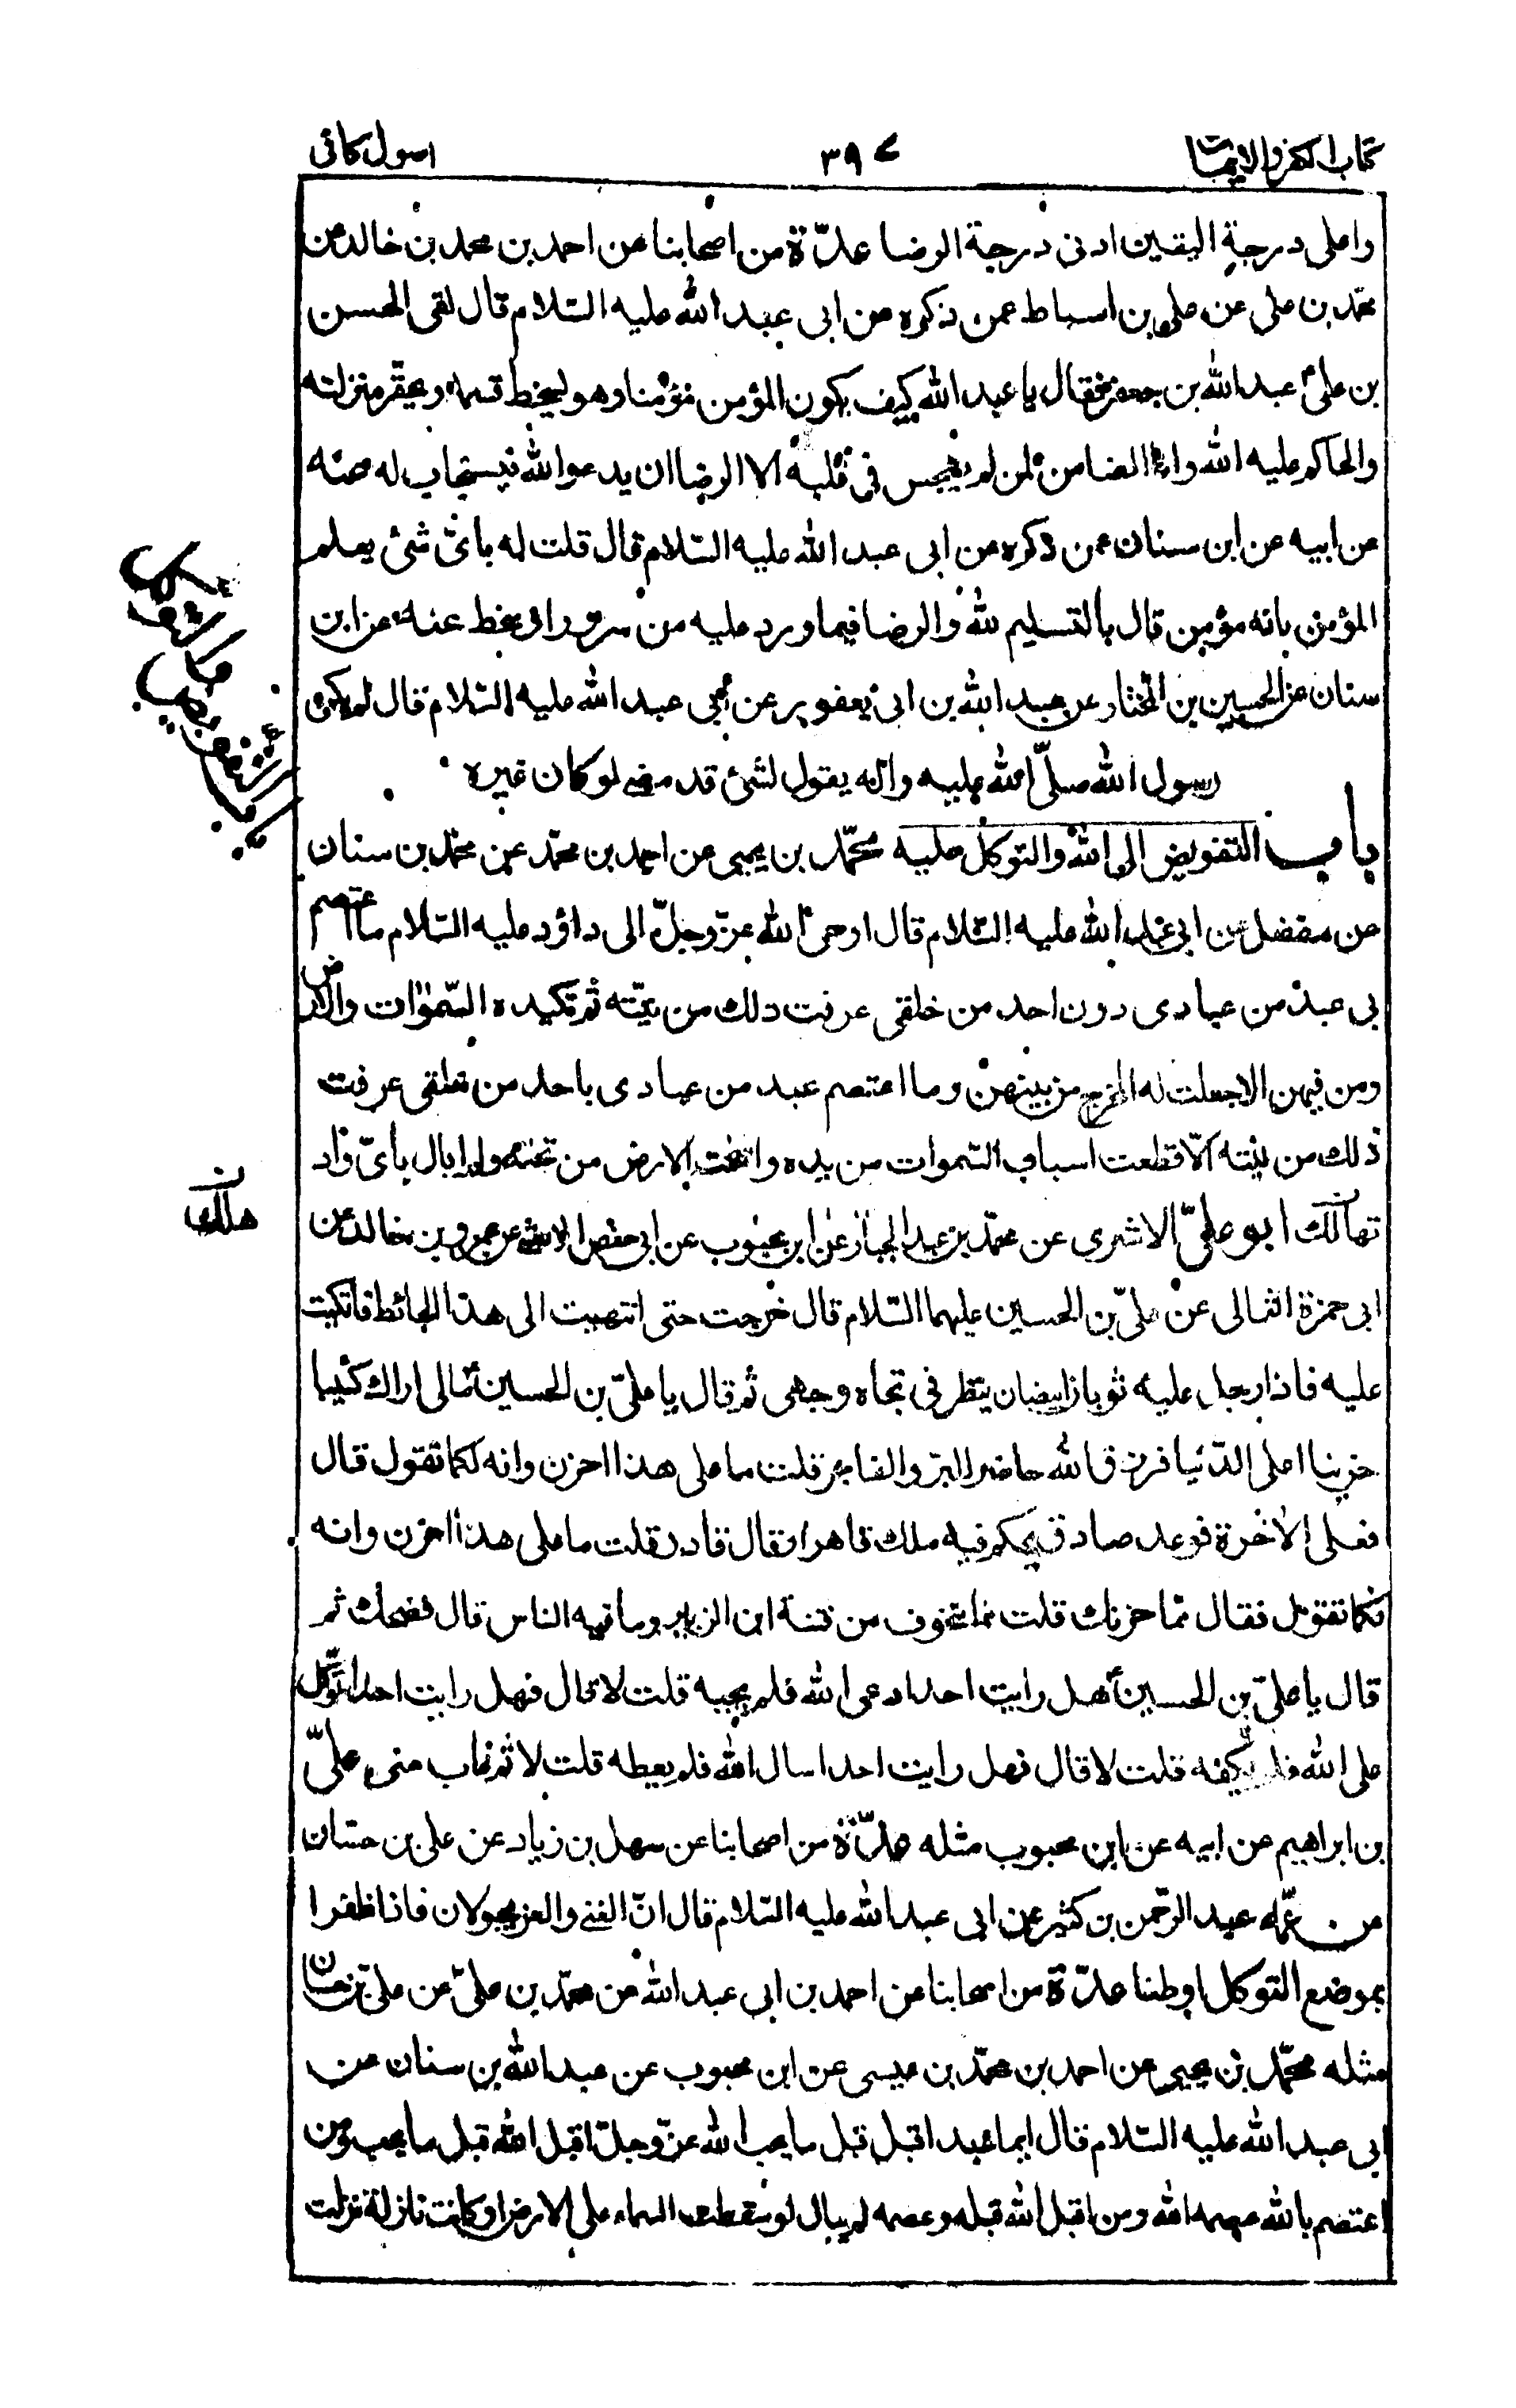 كتاب الكفر والايمان
٣٩٧
اصول كافى
واعلى درجة اليقين ادنى درجة الرضا عدّة من اصحابنا عن احمد بن محمد بن خالد عن
محمّد بن على عن على بن اسباط عمن ذكره عن ابى عبد الله عليه السّلام قال لقى الحسن
بن علىّ عبد الله بن جعفر فقال يا عبد الله كيف يكون المؤمن مؤمنا وهو يسخط قسمه ويحقّر منزلته
والحاكم عليه الله وانا الضامن لمن لم يهجس فى قلبه الا الرضا ان يدعو الله فيستجاب له عنه
عن ابيه عن ابن سنان عمن ذكره عن ابى عبد الله عليه السّلام قال قلت له باىّ شئ يعلم
المؤمن بانه مؤمن قال بالتسليم لله والرضا فيما ورد عليه من سرور او سخط عنه عن ابن
سنان عن الحسين بن المختار عن عبد الله بن ابى يعفور عن ابى عبد الله عليه السّلام قال لم يكن
رسول الله صلّى الله عليه واله يقول لشئ قد مضى لو كان غيره
باب التفويض الى الله والتوكل عليه محمّد بن يحيى عن احمد بن محمّد عن محمّد بن سنان
عن مفضل عن ابى عبد الله عليه السّلام قال اوحى الله عزّ وجلّ الى داؤد عليه السّلام ما اعتصم
بى عبد من عبادى دون احد من خلقى عرفت ذلك من نيّته ثم تكيده السّموات والارض
ومن فيهن الا جعلت له المخرج من بينهنّ وما اعتصم عبد من عبادى باحد من خلقى عرفت
ذلك من نيّته الّا قطعت اسباب السّموات من يديه واسخت الارض من تحته ولم ابال باىّ واد
تهالك ابو علىّ الاشعرى عن محمّد بن عبد الجبّار عن ابن محبوب عن ابى حفص الاعشى عن عمرو بن خالد عن
ابى حمزة الثمالى عن علىّ بن الحسين عليهما السّلام قال خرجت حتى انتهيت الى هذا الحائط فاتكيت
عليه فاذا رجل عليه ثوبان ابيضان ينظر فى تجاه وجهى ثم قال يا علىّ بن الحسين مالى اراك كئيبا
حزينا اعلى الدّنيا فرزق الله حاضر للبرّ والفاجر قلت ما على هذا احزن وانه لكما تقول قال
فعلى الاخرة فوعد صادق يحكم فيه ملك قاهر او قال قادر قلت ما على هذا احزن وانه
لكما تقول فقال ممّا حزنك قلت مما نتخوف من فتنة ابن الزبير وما فيه الناس قال فضحك ثم
قال يا علىّ بن الحسين هل رايت احدا دعى الله فلم يجبه قلت لا قال فهل رايت احدا توكّل
على الله فلم يكفه قلت لا قال فهل رايت احدا سال الله فلم يعطه قلت لا ثم غاب عنى علىّ
بن ابراهيم عن ابيه عن ابن محبوب مثله عدّة من اصحابنا عن سهل بن زياد عن على بن حسّان
عن عمّه عبد الرّحمن بن كثير عن ابى عبد الله عليه السّلام قال انّ الغنى والعز يجولان فاذا ظفرا
بموضع التوكل اوطنا عدّة من اصحابنا عن احمد بن ابى عبد الله عن محمّد بن علىّ عن علىّ بن حسان
مثله محمّد بن يحيى عن احمد بن محمّد بن عيسى عن ابن محبوب عن عبد الله بن سنان عن
ابى عبد الله عليه السّلام قال ايما عبد اقبل قبل ما يحب الله عزّ وجلّ اقبل الله قبل ما يحب ومن
اعتصم بالله عصمه الله ومن اقبل الله قبله وعصمه لم يبال لو سقطت السماء على الارض او كانت نازلة نزلت
باب التفويض
هلك